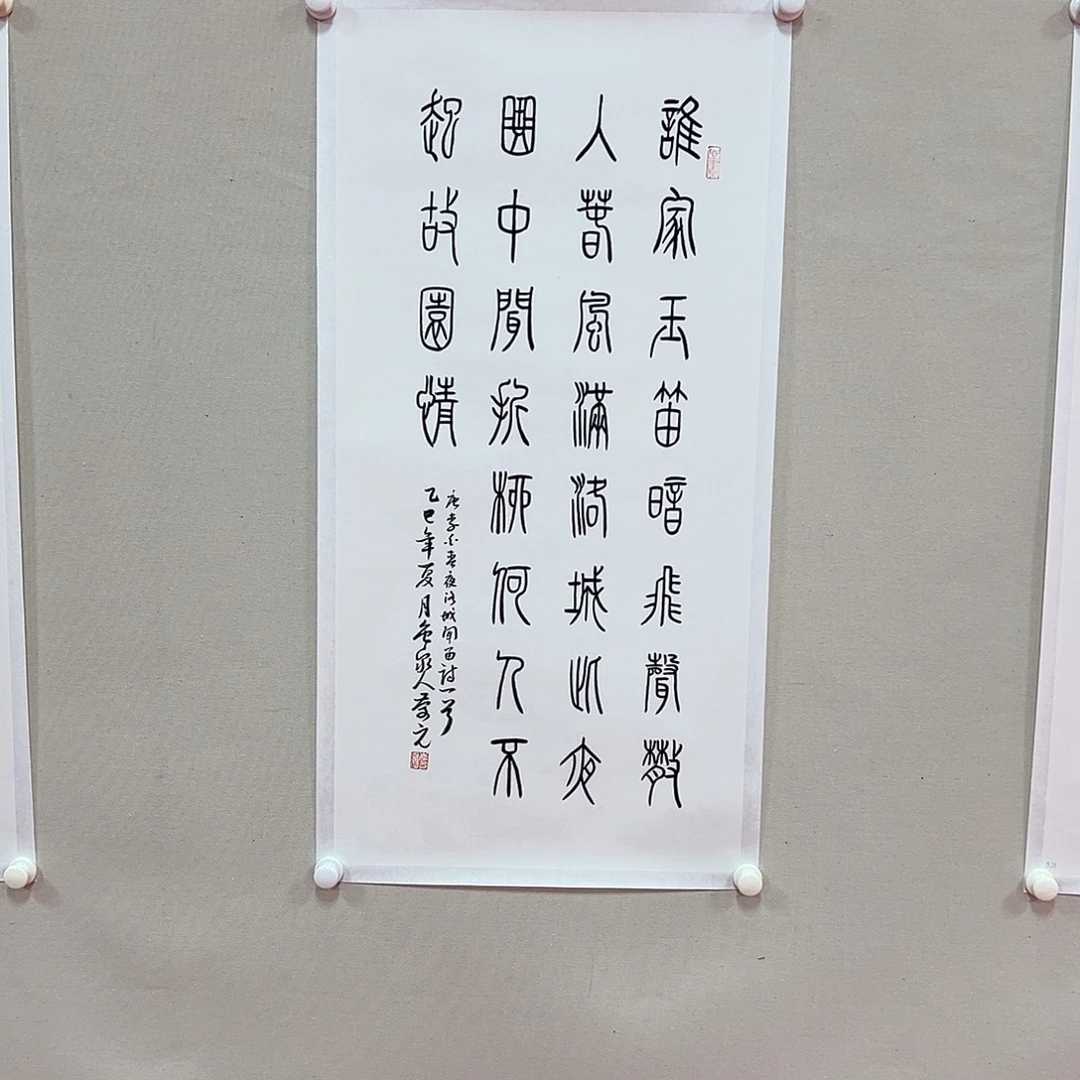 誰家玉笛暗飛聲散
入春風滿洛城此夜
曲中聞折柳何人不
起故園情
唐李白春夜洛城闻笛詩一首
乙巳年夏月